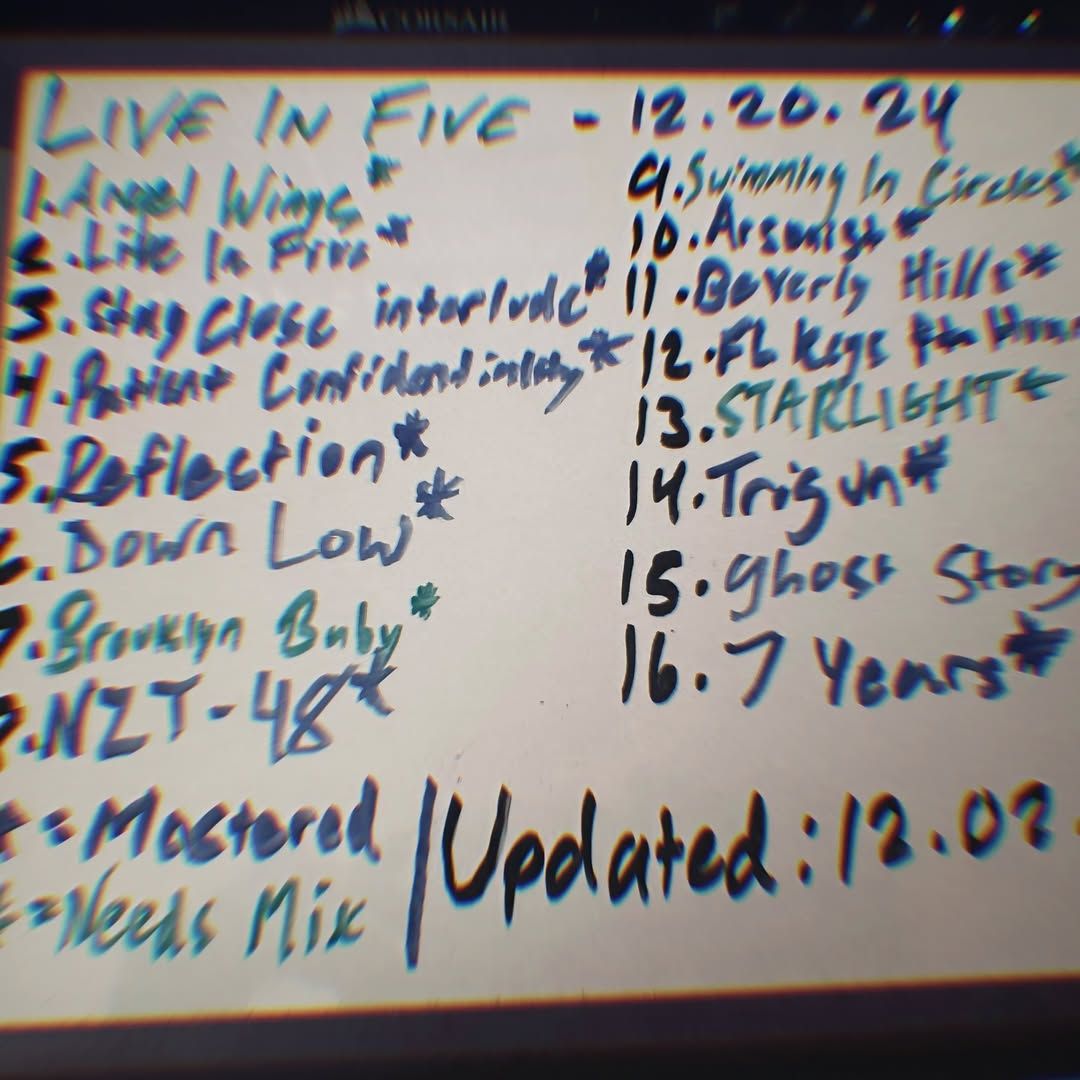 CORSAIR
LIVE IN FIVE - 12.20.24
1.Angel Wings*
2.Live In Five*
3.Stay Close interlude*
4.Patient Confidentiality*
5.Reflection*
6.Down Low*
7.Brooklyn Baby*
8.NZT-48*
9.Swimming In Circles*
10.Arsonist*
11.Beverly Hills*
12.FL Keys
13.STARLIGHT*
14.Trigun*
15.Ghost Story
16.7 Years*
*=Mastered
*=Needs Mix
/Updated:12.02.